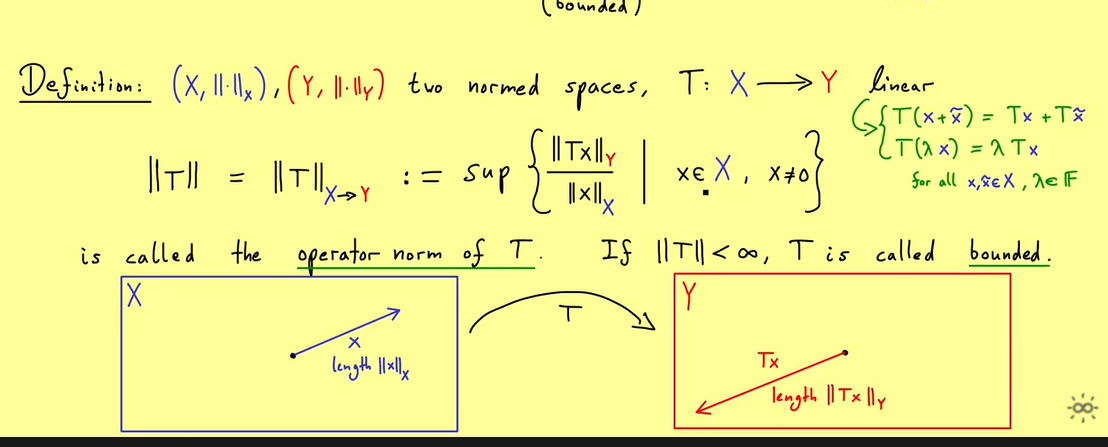 (bounded)
Definition: (X, ||·||_X), (Y, ||·||_Y) two normed spaces, T: X ⟶ Y linear
T(x+x̃) = Tx + Tx̃
T(λx) = λTx
for all x,x̃∈X, λ∈𝔽
||T|| = ||T||_{X→Y} := sup { ||Tx||_Y / ||x||_X | x∈X, x≠0 }
is called the operator norm of T. If ||T|| < ∞, T is called bounded.
X
x
length ||x||_X
T
Y
Tx
length ||Tx||_Y